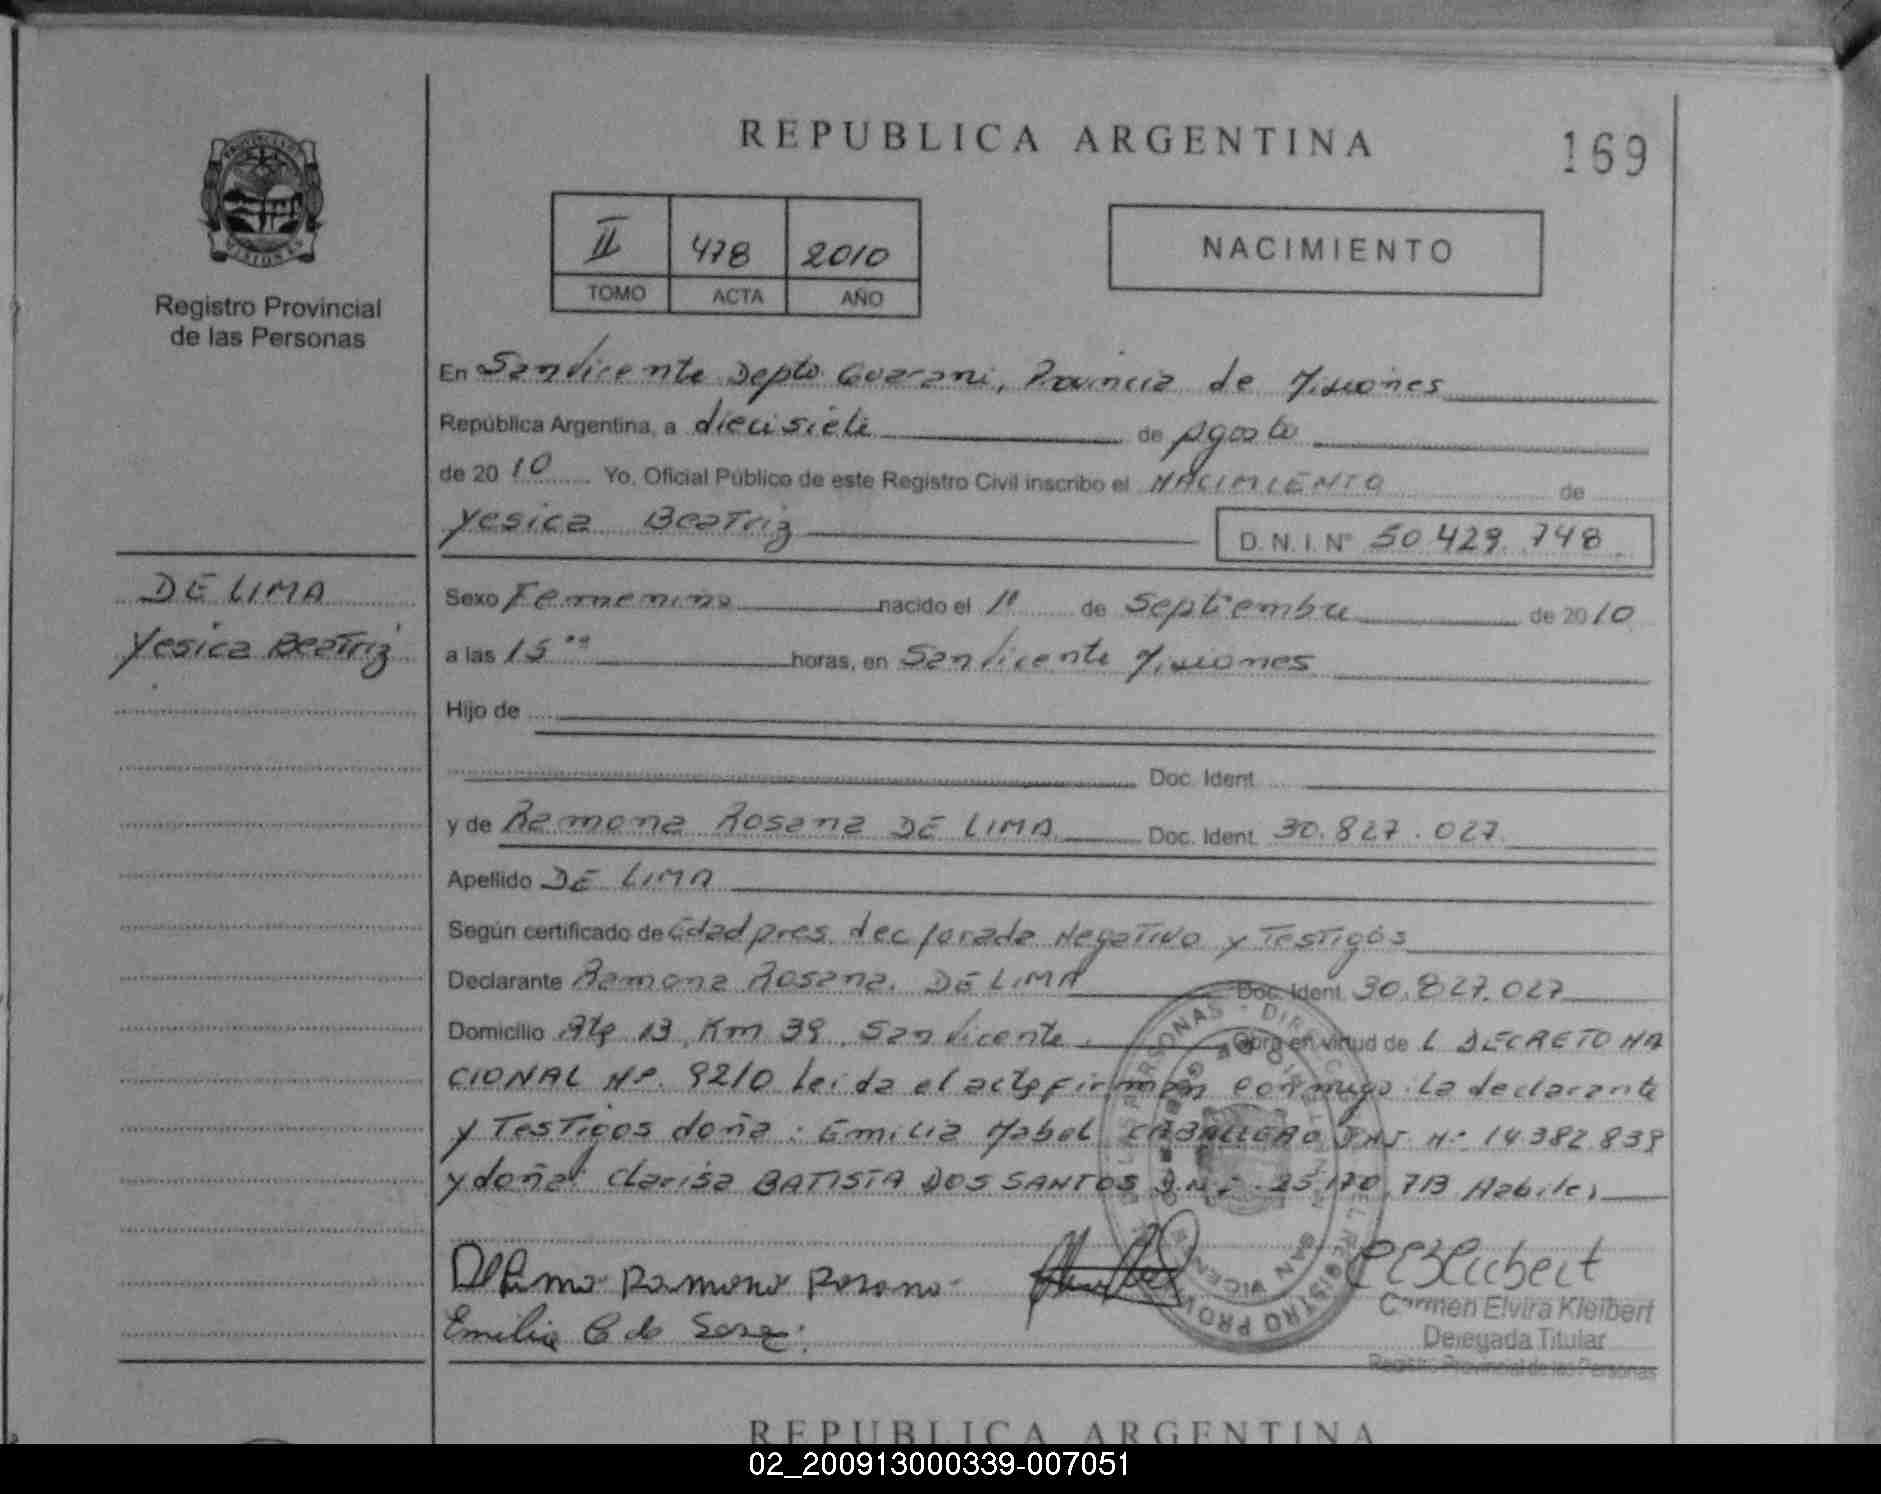 REPUBLICA ARGENTINA
169
II 478 2010
TOMO ACTA AÑO
NACIMIENTO
Registro Provincial
de las Personas
En San Vicente Depto Guarani, Provincia de Misiones
República Argentina, a diecisiete de Agosto
de 20 10 Yo, Oficial Público de este Registro Civil inscribo el NACIMIENTO de
Yesica Beatriz D. N. I. N° 50.429.748
DE LIMA
Yesica Beatriz
Sexo Femenino nacido el 1° de Septiembre de 2010
a las 15 horas, en San Vicente Misiones
Hijo de
Doc. Ident.
y de Ramona Rosana DE LIMA Doc. Ident. 30.827.027
Apellido DE LIMA
Según certificado de Edad pres. dec jorada Negativo y Testigos
Declarante Ramona Rosana DE LIMA Doc. Ident. 30.827.027
Domicilio Rta 13, Km 39, San Vicente. Obra en virtud de L DECRETO NA
CIONAL N°. 92/0 Leida el acta firman conmigo: La declarante
y Testigos doña: Emilia Mabel CABALLERO N° 14.382.839
y doña: Clarisa BATISTA DOS SANTOS D.N.I. 25.170.713 Habiles
De Lima Ramona Rosana
Emilia C de Sosa
Carmen Elvira Kleibert
Delegada Titular
Registro Provincial de las Personas
REPUBLICA ARGENTINA
02_200913000339-007051